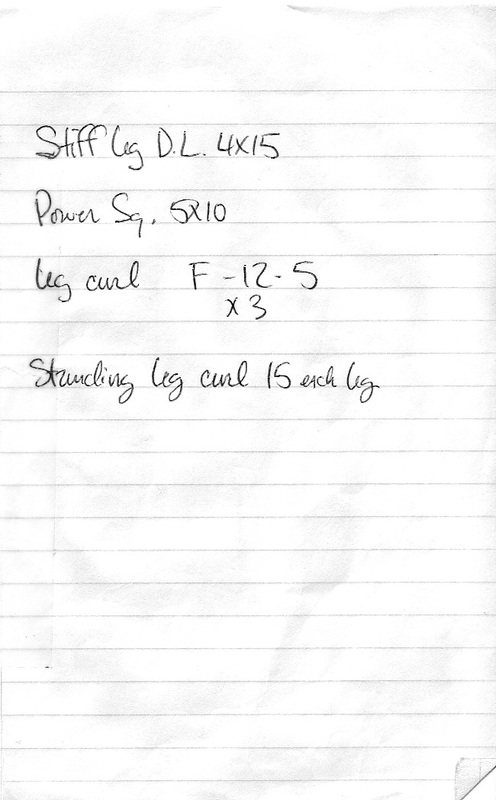 Stiff leg D.L. 4x15
Power Sq. 5x10
leg curl F - 12 - 5
x 3
Standing leg curl 15 each leg